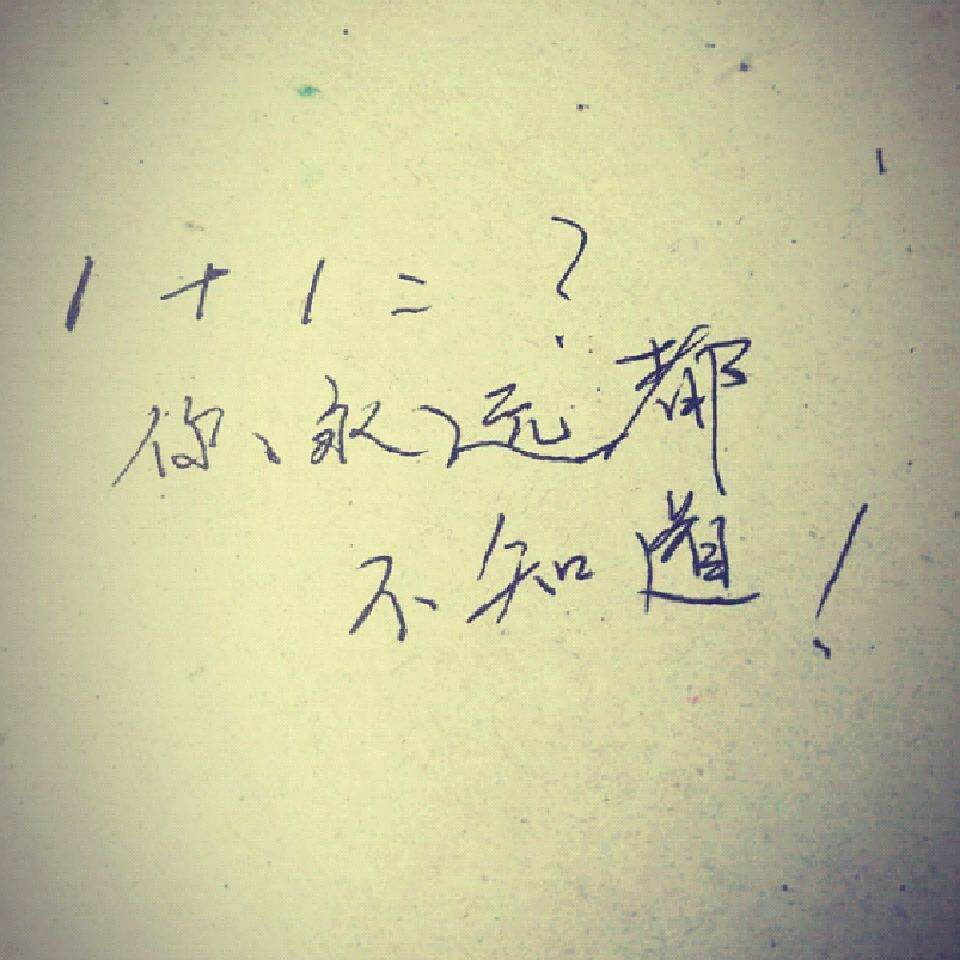 1 + 1 = ?
你、永远都
不知道!